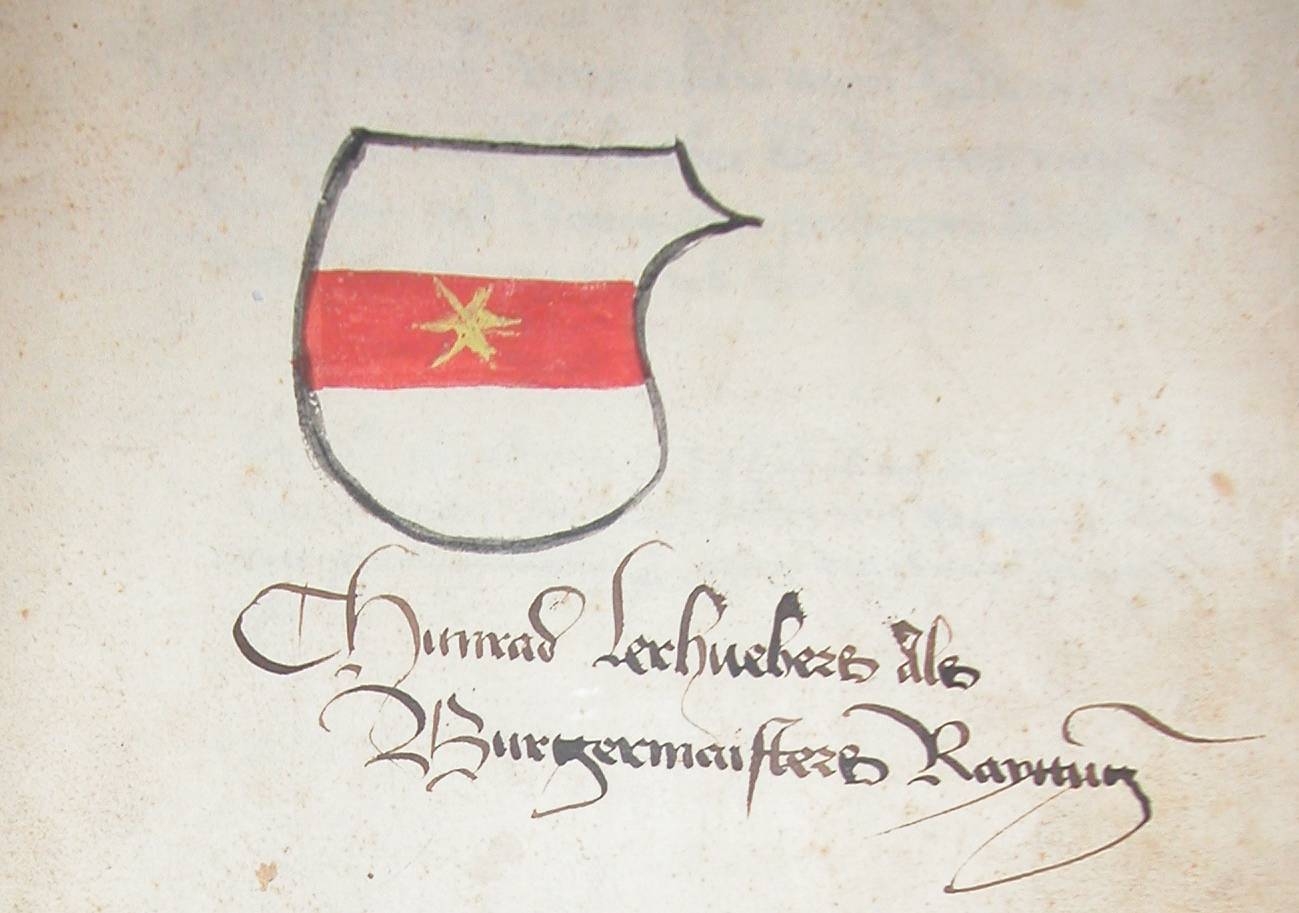 Chunrad lerhuebers als
Burgermaisters Rayttung